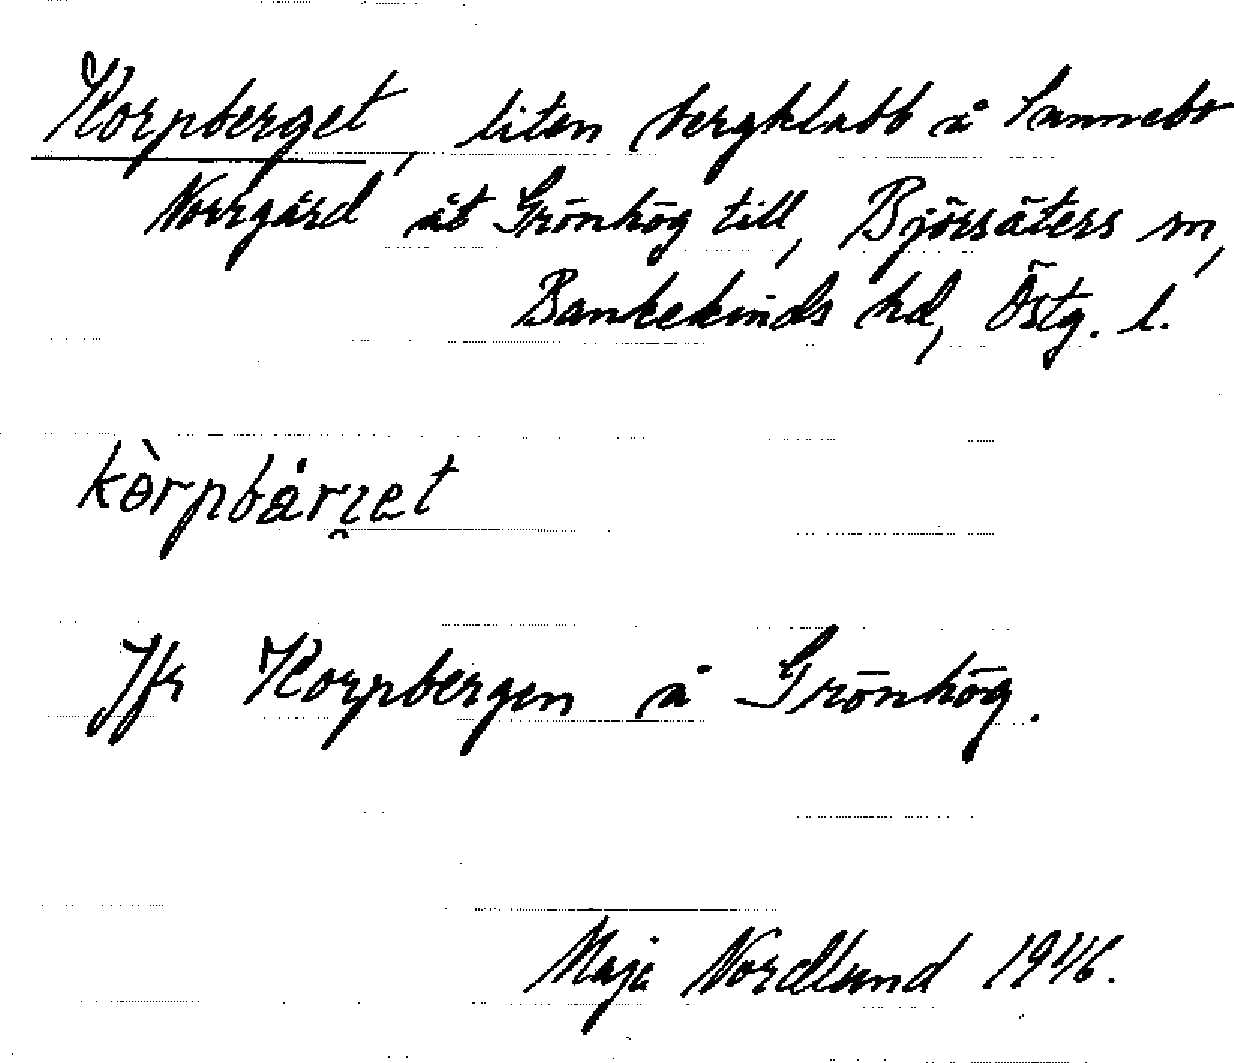 Korpberget, liten bergklabb å Sannebo
Norrgård åt Grönhög till, Björsäters sn,
Bankekinds hd, Östg. l.
Jfr Korpbergen å Grönhög.
Maja Nordlund 1946.